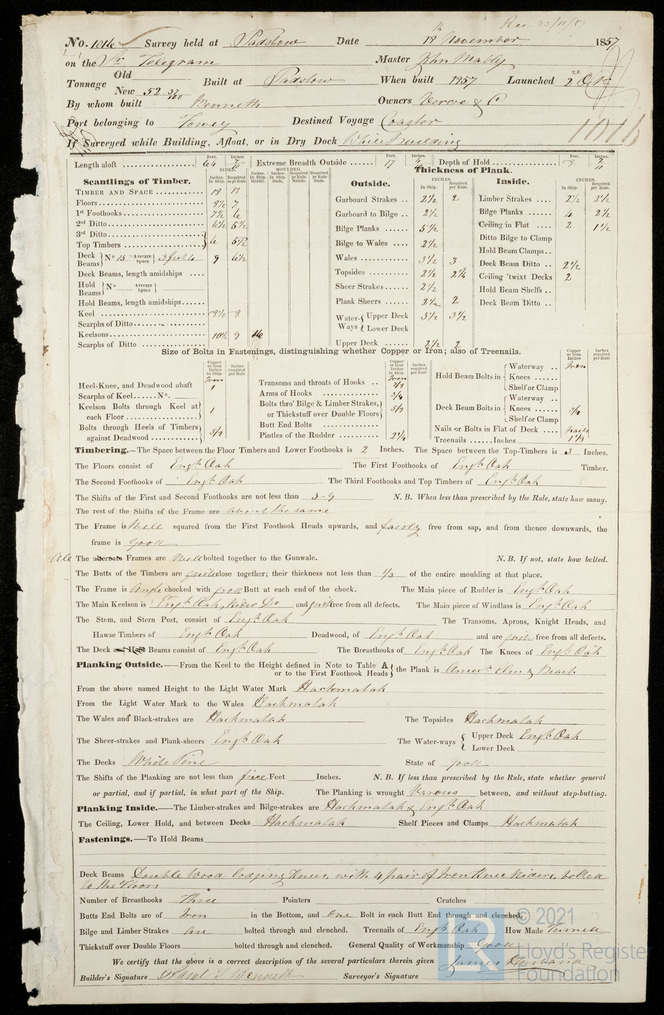 Rec 23/11/57
No. 1016 Survey held at Padstow Date 18th November 1857
on the Sr. Telegram Master John Malty
Tonnage Old New 52 Built at Padstow When built 1857 Launched 2nd Octr
By whom built Bennett Owners & Co
Port belonging to Fowey Destined Voyage Coaster
If Surveyed while Building, Afloat, or in Dry Dock While building
Length aloft 64 Extreme Breadth Outside 17 Depth of Hold
Scantlings of Timber.
Thickness of Plank.
Outside.
Inside.
TIMBER AND SPACE
Floors 7
1st Foothooks 7½ 6
2nd Ditto 6½ 5½
3rd Ditto
Top Timbers 6 5½
Deck Beams No 15 Average Space 9 6½
Deck Beams, length amidships
Hold Beams No Average Space
Hold Beams, length amidships
Keel 8½ 8
Scarphs of Ditto
Keelsons 10½ 9
Scarphs of Ditto
Garboard Strakes 2½ 2
Garboard to Bilge 2½
Bilge Planks 5½
Bilge to Wales 2½
Wales 3½ 3
Topsides 2½ 2¼
Sheer Strakes 2½
Plank Sheers 2½ 2
Water-Ways Upper Deck 3½ 3½
Lower Deck
Upper Deck 2½ 2
Limber Strakes 2½ 2½
Bilge Planks 4 2½
Ceiling in Flat 2 1½
Ditto Bilge to Clamp
Hold Beam Clamps
Deck Beam Ditto 2½
Ceiling 'twixt Decks 2
Hold Beam Shelfs
Deck Beam Ditto
Size of Bolts in Fastenings, distinguishing whether Copper or Iron; also of Treenails.
Heel-Knee, and Deadwood abaft 1
Scarphs of Keel No.
Keelson Bolts through Keel at each Floor 1
Bolts through Heels of Timbers against Deadwood
Transoms and throats of Hooks
Arms of Hooks
Bolts thro' Bilge & Limber Strakes, or Thickstuff over Double Floors
Butt End Bolts
Pintles of the Rudder 2¼
Hold Beam Bolts in Waterway Iron
Knees
Shelf or Clamp
Deck Beam Bolts in Waterway
Knees
Shelf or Clamp
Nails or Bolts in Flat of Deck Nails
Treenails Inches
Timbering.—The Space between the Floor Timbers and Lower Foothooks is 2 Inches. The Space between the Top-Timbers is 3 Inches.
The Floors consist of Engh Oak The First Foothooks of Engh Oak Timber.
The Second Foothooks of Engh Oak The Third Foothooks and Top Timbers of Engh Oak
The Shifts of the First and Second Foothooks are not less than 3-9 N. B. When less than prescribed by the Rule, state how many.
The rest of the Shifts of the Frame are about the same
The Frame is Well squared from the First Foothook Heads upwards, and fairly free from sap, and from thence downwards, the
frame is good
The alternate Frames are Well bolted together to the Gunwale. N. B. If not, state how bolted.
The Butts of the Timbers are quite close together; their thickness not less than 1/3 of the entire moulding at that place.
The Frame is Single chocked with good Butt at each end of the chock. The Main piece of Rudder is Engh Oak
The Main Keelson is Engh Oak, Rider Do and quite free from all defects. The Main piece of Windlass is Engh Oak
The Stem, and Stern Post, consist of Engh Oak The Transoms, Aprons, Knight Heads, and
Hawse Timbers of Engh Oak Deadwood, of Engh Oak and are quite free from all defects.
The Deck and Hold Beams consist of Engh Oak The Breasthooks of Engh Oak The Knees of Engh Oak
Planking Outside.—From the Keel to the Height defined in Note to Table A or to the First Foothook Heads the Plank is Amern Elm & Beech
From the above named Height to the Light Water Mark Hackmatak
From the Light Water Mark to the Wales Hackmatak
The Wales and Black-strakes are Hackmatak The Topsides Hackmatak
The Sheer-strakes and Plank-sheers Engh Oak The Water-ways Upper Deck Engh Oak
Lower Deck
The Decks White Pine State of good
The Shifts of the Planking are not less than five Feet Inches. N. B. If less than prescribed by the Rule, state whether general
or partial, and if partial, in what part of the Ship. The Planking is wrought between, and without step-butting.
Planking Inside.—The Limber-strakes and Bilge-strakes are Hackmatak & Engh Oak
The Ceiling, Lower Hold, and between Decks Hackmatak Shelf Pieces and Clamps Hackmatak
Fastenings.—To Hold Beams
Deck Beams Double Wood lodging Knees, with 4 pair of Iron Knee Riders, bolted
to the floors
Number of Breasthooks Three Pointers Crutches
Butts End Bolts are of Iron in the Bottom, and one Bolt in each Butt End through and clenched.
Bilge and Limber Strakes are bolted through and clenched. Treenails of Engh Oak How Made Turned
Thickstuff over Double Floors bolted through and clenched. General Quality of Workmanship Good
We certify that the above is a correct description of the several particulars therein given
Builder's Signature Bennett Surveyor's Signature James
© 2021
Lloyd's Register
Foundation